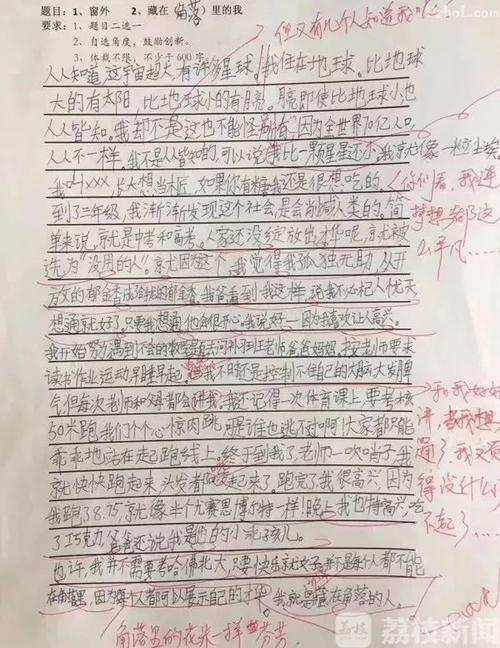 题目：1、窗外　2、藏在（角落）里的我
要求：1、题目二选一
2、自选角度，鼓励创新。
3、体裁不限，不少于600字
但又有几个人知道我
人人知道，这宇宙超大有许多星球。我住在地球。比地球
大的有太阳，比地球小的有月亮。月亮即使比地球小，也
人人皆知。我却不是这也不能怪别人因为全世界70亿人口，
人人不一样。我不是人皆知的，可以说我比一颗星星还小。我京尤像一粒尘埃
我叫xxx 长大想当大厨，如果你有糖我还是很想吃的。
到了三年级，我渐渐发现这个社会，是会削减人类的。简
单来说，就是中考和高考。人家还没绽放出才华呢，就被
选为“没用的人”。京尤因这个，我觉得我孤独无助，从开
放的郁金香成给我爸看到我这样，说我不必杞人忧天
想通就好了。只要我想通他会很开心。我说好一因为我喜欢让人高兴。
我开始努力遇到不会的数学题去问补习班老师爸爸妈妈。按老师要求
读书作业运动早睡早起。但我不时还是控制不住自己的大脑大发脾
气但每次老师和妈都会讲我。我还记得一次体育课上，要考核
50米跑，我们个个心惊肉跳，可是谁也逃不如啊大家都只能
乖乖地站在起跑线上。终于到我了，老师一吹哨子我
就快快跑起来，头发都起来了。跑完了我很高兴，因为
我跑了8.75就像半个儿赛思博尔特一样！晚上我也特高兴，吃
了巧克力爸爸还说我是他的小乖孩儿。
也许，我并不需要考哈佛北大，只要快乐就女子。并不是每个人都不能
在角落里，因为每个人都可以展示自己的才华。我就是藏在角落的人。
你们看，我连
梦想都这
么平凡……
和我好好
讲，当我想
通了，我又觉
得没什么
不起了……
角落里的花米一样 芬芳
荔枝
荔枝新闻